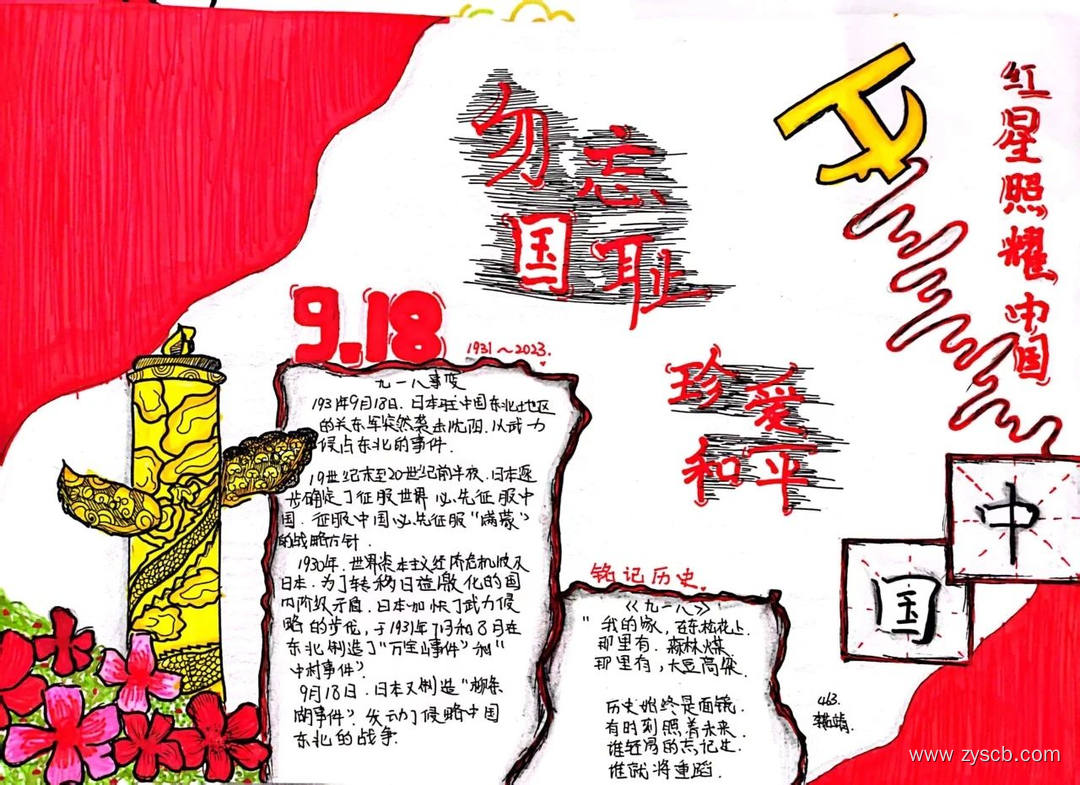 勿忘
国耻
红星照耀中国
9.18
1931～2023.
珍爱
和平
九一八事变
1931年9月18日.日本驻中国东北地区
的关东军突然袭击沈阳.以武力
侵占东北的事件.
19世纪末至20世纪前半夜.日本逐
步确定了征服世界必先征服中
国.征服中国必先征服“满蒙”
的战略方针.
1930年.世界资本主义经济危机波及
日本.为了转移日益激化的国
内阶级矛盾.日本加快了武力侵
略的步伐,于1931年7月和8月在
东北制造了“万宝山事件”和“
中村事件”
9月18日.日本又制造“柳条
湖事件”.发动了侵略中国
东北的战争.
中
国
铭记历史.
《九一八》
“我的家,在东松花上.
那里有.森林煤.
那里有,大豆高粱.
历史始终是面镜.
有时刻照着未来.
谁轻易的忘记史.
谁就将重蹈.
463.
www.zyscb.com